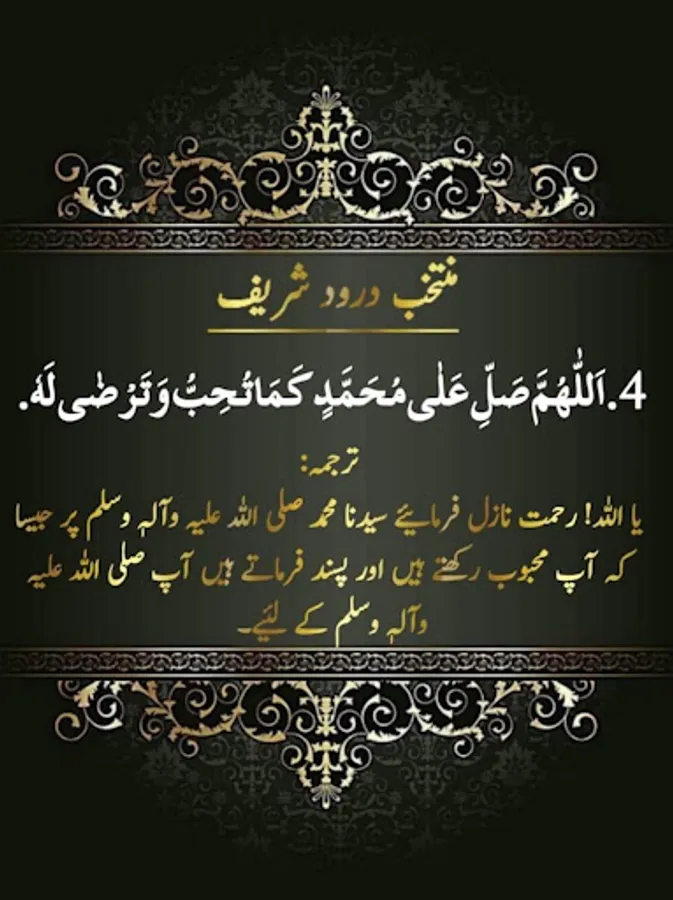 منتخب درود شریف
4. اَللّٰهُمَّ صَلِّ عَلٰى مُحَمَّدٍ كَمَا تُحِبُّ وَتَرْضٰى لَهٗ.
ترجمہ:
یا اللہ! رحمت نازل فرمائیے سیدنا محمد صلی اللہ علیہ وآلہٖ وسلم پر جیسا
کہ آپ محبوب رکھتے ہیں اور پسند فرماتے ہیں آپ صلی اللہ علیہ
وآلہٖ وسلم کے لئیے۔